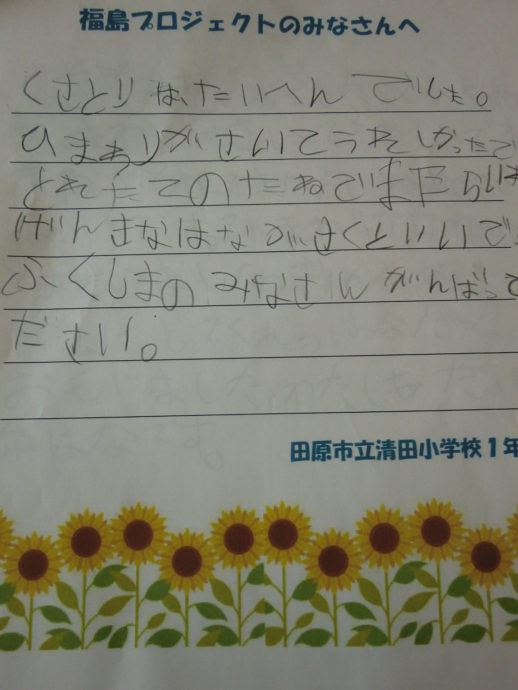 福島プロジェクトのみなさんへ
くさとりは、たいへんでした。
ひまわりがさいてうれしかったで
とれたてのたねでまたらい
げんきなはながさくといいで
ふくしまのみなさんがんばって
ださい。
田原市立清田小学校1年